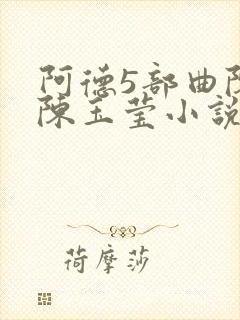 阿德5部曲
陈玉莹小说
荷摩莎